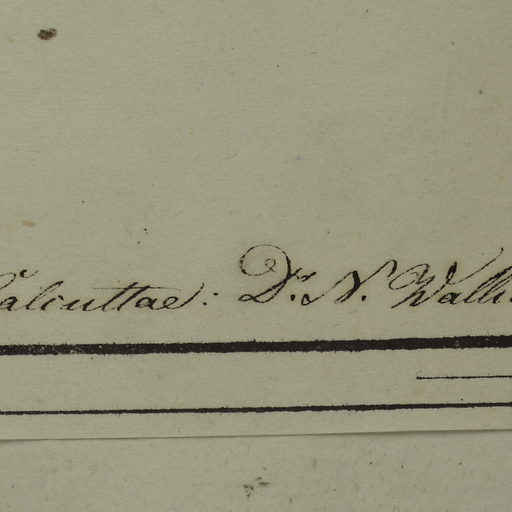 Calcuttae: Dr. N. Walli